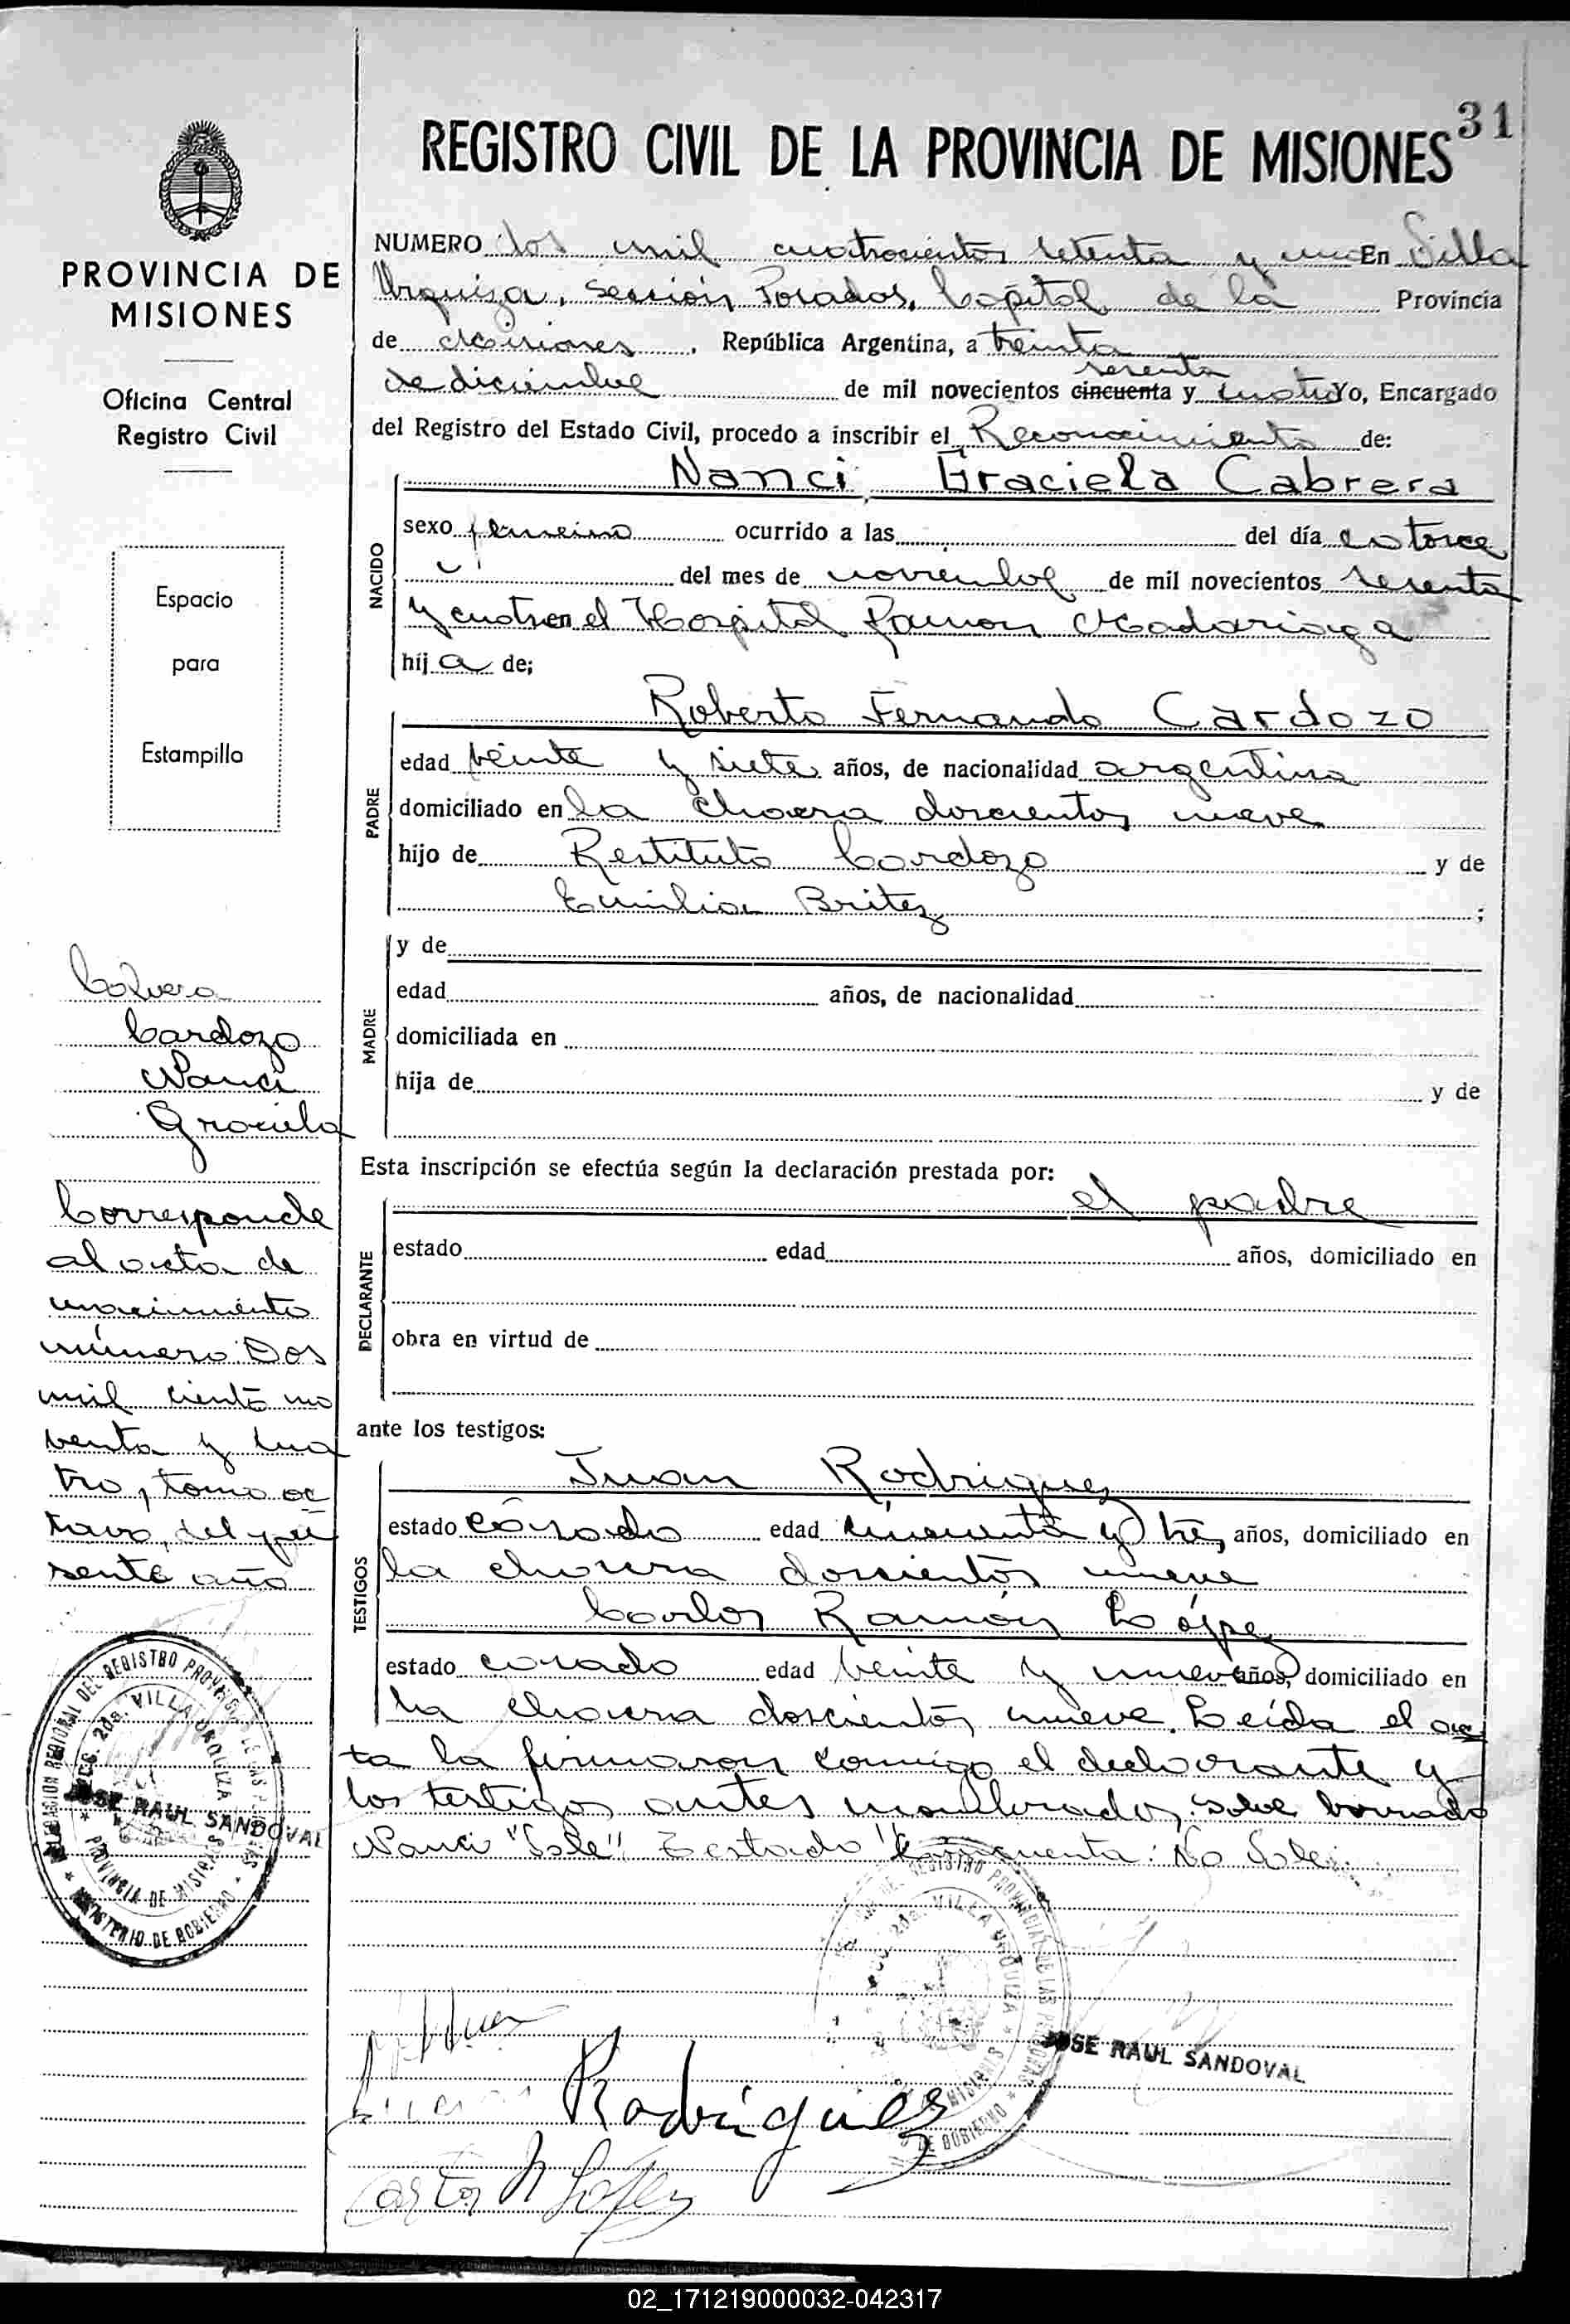 31
REGISTRO CIVIL DE LA PROVINCIA DE MISIONES
PROVINCIA DE
MISIONES
Oficina Central
Registro Civil
Espacio
para
Estampilla
NUMERO dos mil cuatrocientos setenta y uno En Villa
Urquiza, sección Posadas, Capital de la Provincia
de Misiones, República Argentina, a treinta
sesenta
de diciembre de mil novecientos cincuenta y cuatro Yo, Encargado
del Registro del Estado Civil, procedo a inscribir el Reconocimiento de:
NACIDO
Nanci Graciela Cabrera
sexo femenino ocurrido a las del día catorce
del mes de noviembre de mil novecientos sesenta
y cuatro en el Hospital Ramon Madariaga
hija de;
PADRE
Roberto Fernando Cardozo
edad veinte y siete años, de nacionalidad argentina
domiciliado en la chacra doscientos nueve
hijo de Restituto Cardozo y de
Emilia Britez ;
MADRE
y de
edad años, de nacionalidad
domiciliada en
hija de y de
Esta inscripción se efectúa según la declaración prestada por:
DECLARANTE
el padre
estado edad años, domiciliado en
obra en virtud de
ante los testigos:
TESTIGOS
Juan Rodriguez
estado casado edad cincuenta y tres años, domiciliado en
la chacra doscientos nueve
Carlos Ramón López
estado casado edad veinte y nueve años, domiciliado en
la chacra doscientos nueve. Leída el ac
ta la firmaron conmigo el declarante y
los testigos antes nombrados. sobre borrado
Nanci "Vale" Testado "Cincuenta: No Vale
Cardozo
Nanci
Graciela
Corresponde
al acta de
nacimiento
número Dos
mil ciento no
venta y cua
tro, tomo oc
tavo, del pre
sente año
VILLA URQUIZA
PROVINCIA DE MISIONES
MINISTERIO DE GOBIERNO
JOSE RAUL SANDOVAL
VILLA URQUIZA
JOSE RAUL SANDOVAL
Rodriguez
Carlos R López
02_171219000032-042317